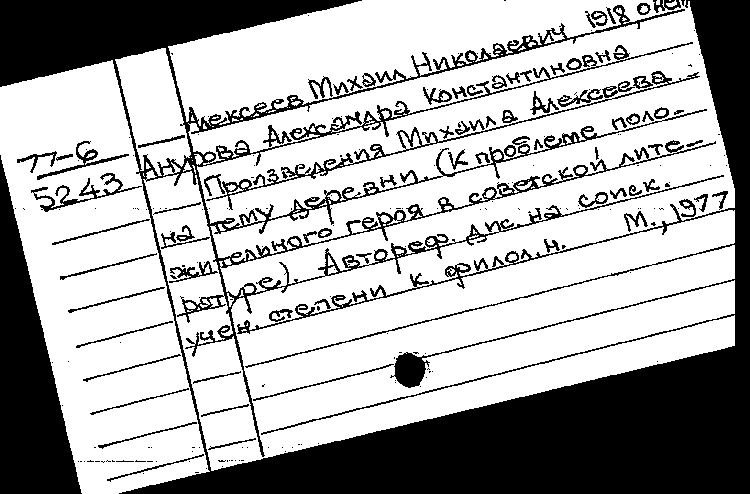 Алексеев, Михаил Николаевич, 1918, о нем
77-6
5243
Анурова, Александра Константиновна
Произведения Михаила Алексеева
на тему деревни. (К проблеме поло-
жительного героя в советской лите-
ратуре). Автореф. дис. на соиск.
учен. степени к. филол. н. М., 1977